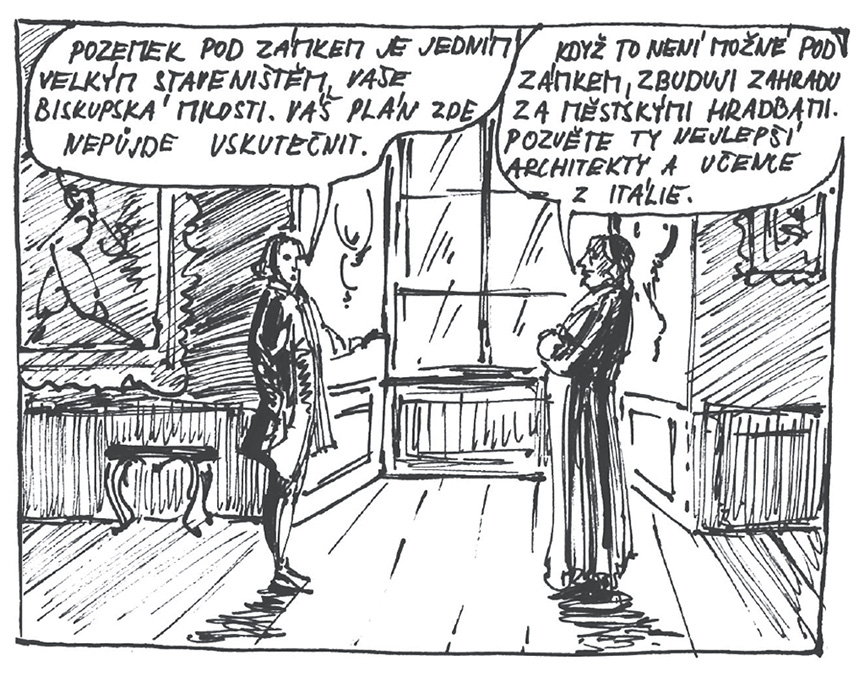 POZEMEK POD ZÁMKEM JE JEDNÍM
VELKÝM STAVENIŠTĚM, VAŠE
BISKUPSKÁ MILOSTI. VÁŠ PLÁN ZDE
NEPŮJDE USKUTEČNIT.
KDYŽ TO NENÍ MOŽNÉ POD
ZÁMKEM, ZBUDUJI ZAHRADU
ZA MĚSTSKÝMI HRADBAMI.
POZVĚTE TY NEJLEPŠÍ
ARCHITEKTY A UČENCE
Z ITÁLIE.